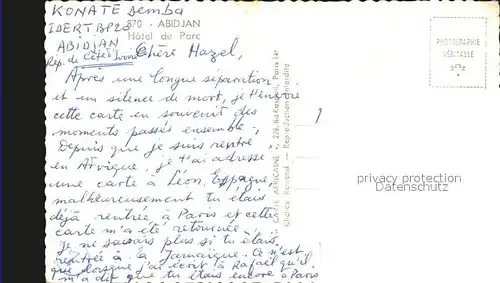 KONATE Demba
IDERT BP20
ABIDJAN
Rep. de Côte d'Ivoire
870 - ABIDJAN
Hôtel du Parc
Chère Hazel,
Après une longue séparation
et un silence de mort, je t'envoie
cette carte en souvenir des
moments passés ensemble.
Depuis que je suis rentré
en Afrique, je t'ai adressé
une carte à Léon, Espagne,
malheureusement tu étais
déjà rentrée à Paris et cette
carte m'a été retournée.
je ne savais plus si tu étais
rentrée à la Jamaïque. Ce n'est
que lorsque j'ai écrit à Rafaël qu'il
m'a dit que tu étais encore à Paris
LA CARTE AFRICAINE, 226, Bd Raspail, Paris 14e
Reproduction interdite
PHOTOGRAPHIE
VÉRITABLE
privacy protection
DatenSchutz